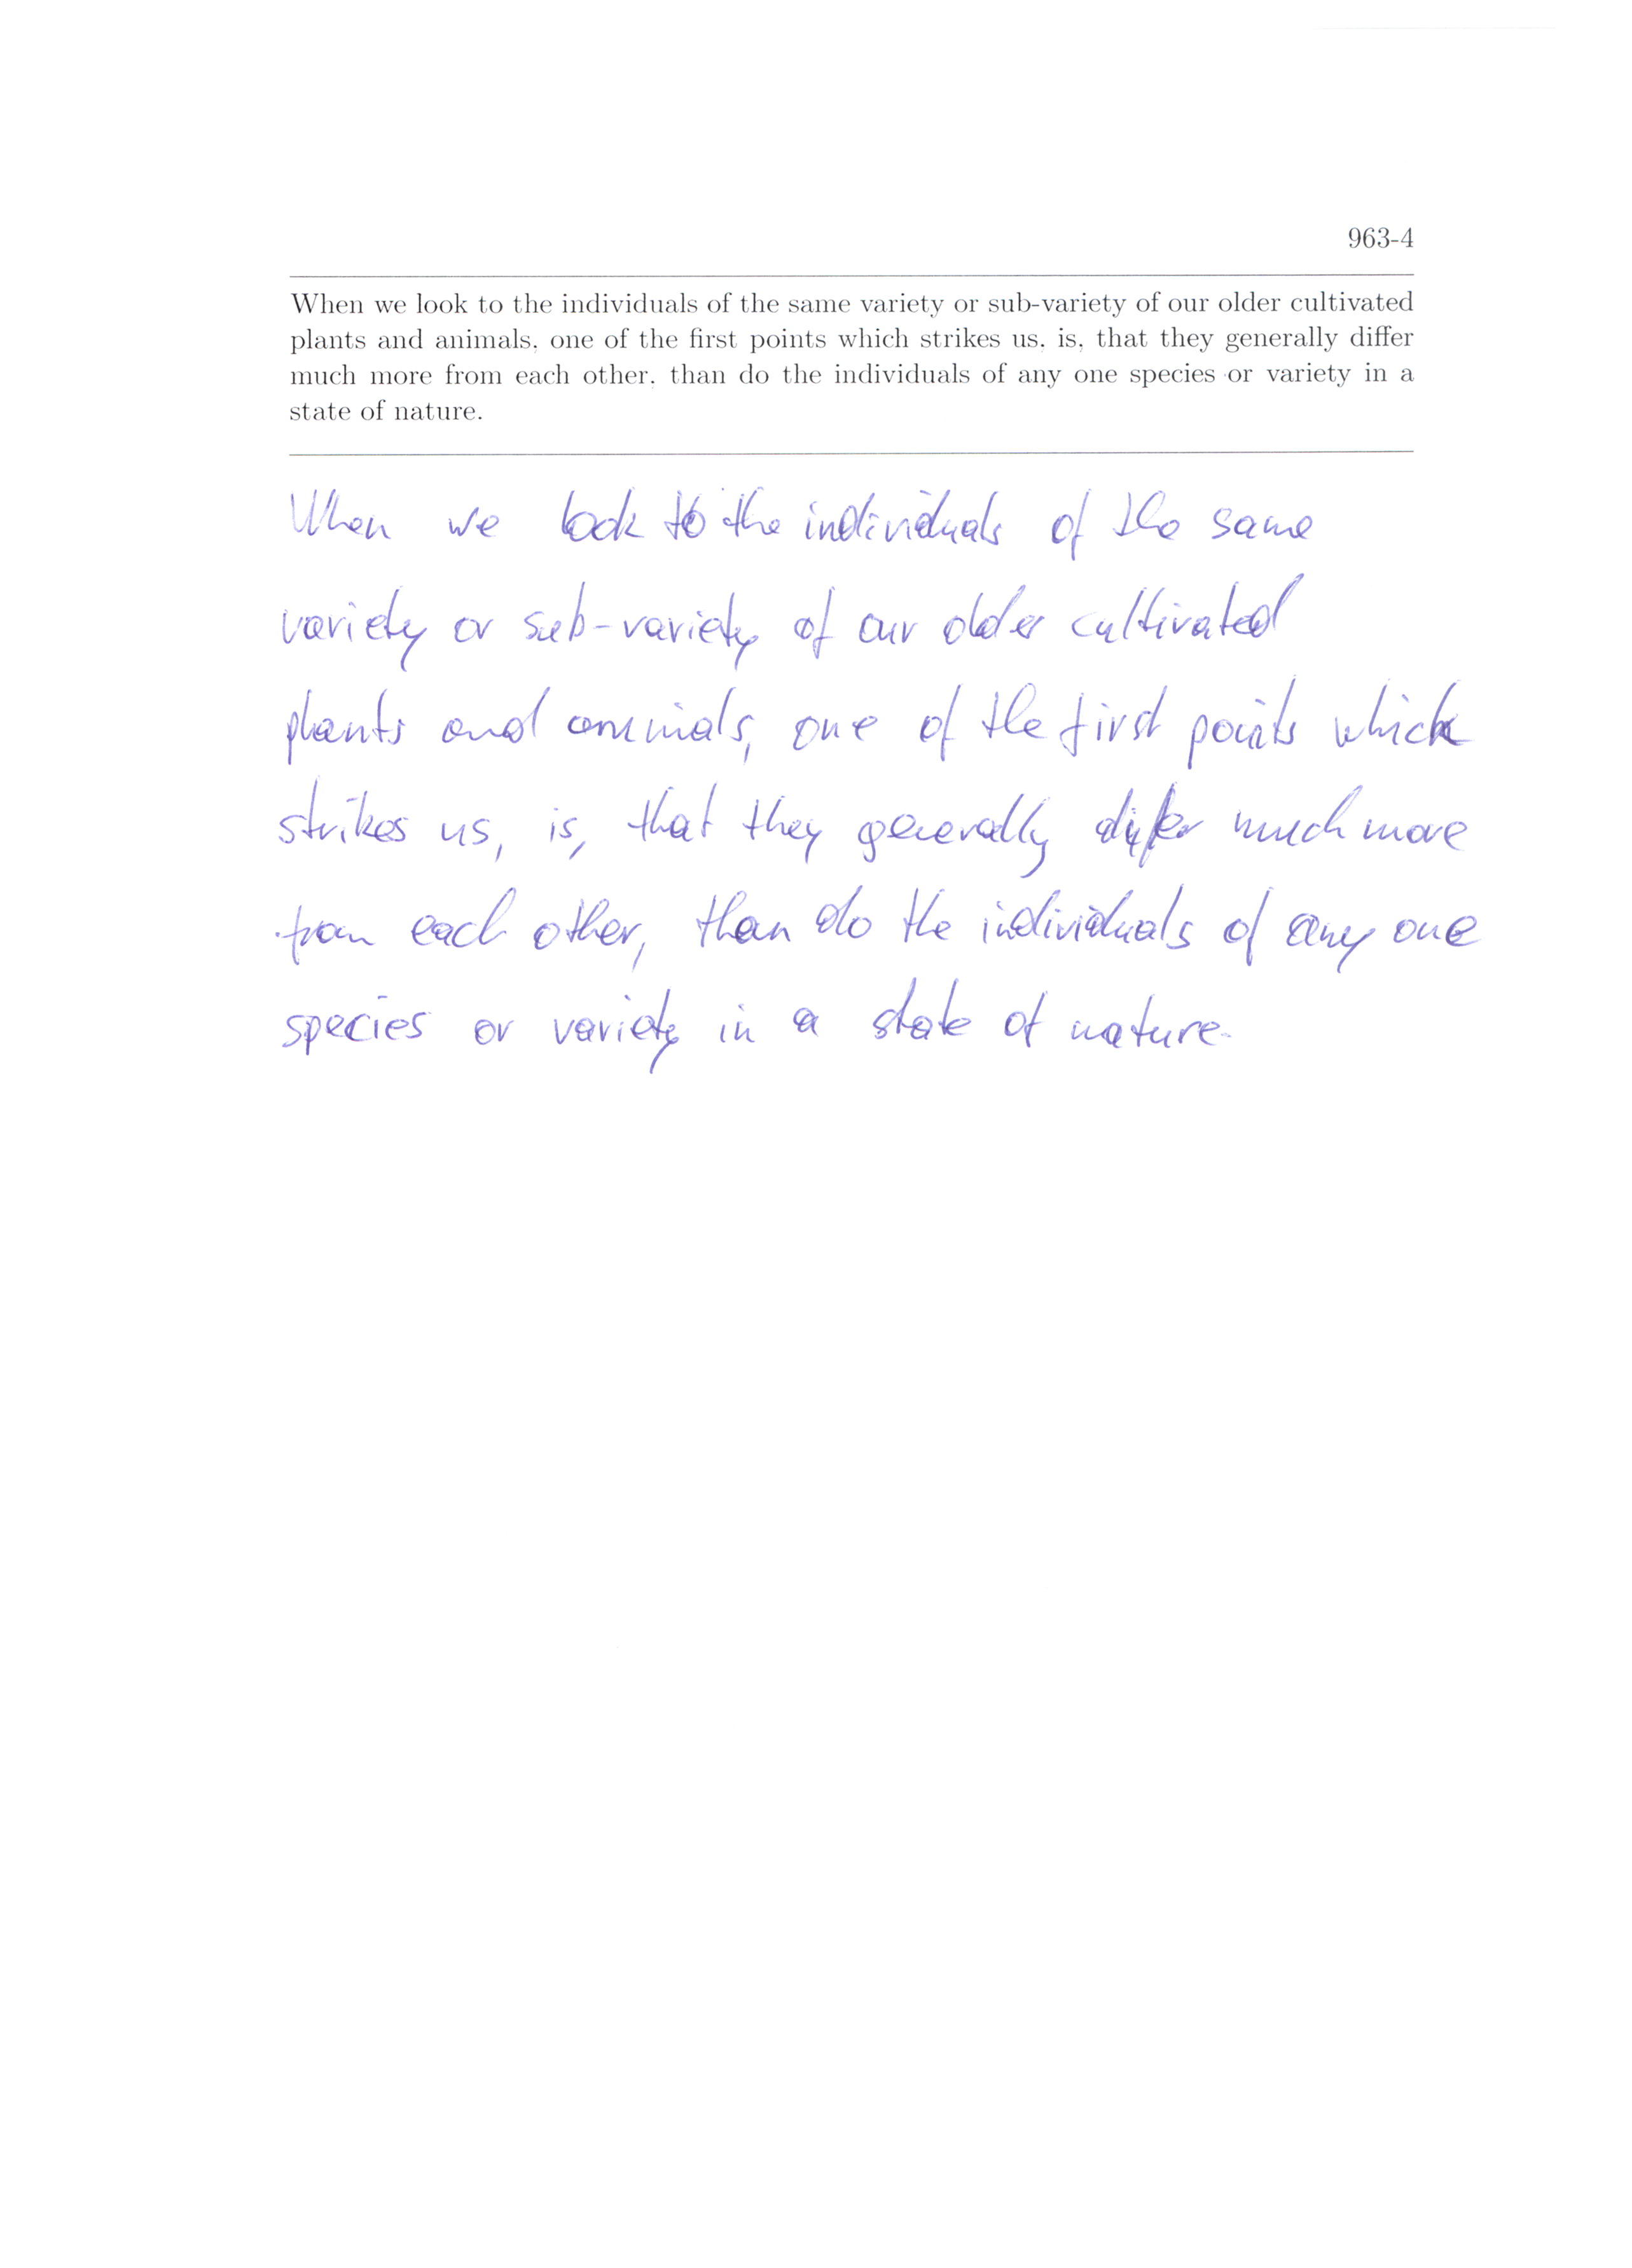 963-4
When we look to the individuals of the same variety or sub-variety of our older cultivated
plants and animals, one of the first points which strikes us, is, that they generally differ
much more from each other, than do the individuals of any one species or variety in a
state of nature.
When we look to the individuals of the same
variety or sub-variety of our older cultivated
plants and animals, one of the first points which
strikes us, is, that they generally differ much more
from each other, than do the individuals of any one
species or variety in a state of nature.